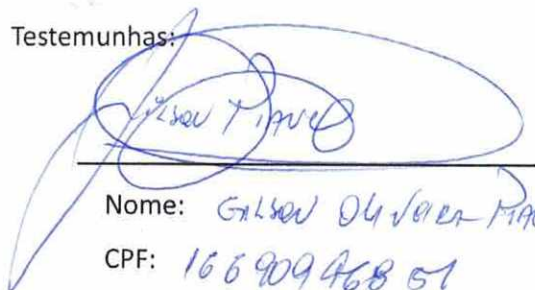 Testemunhas:
Gilson
Nome: Gilson Oliveira
CPF: 166909468 51